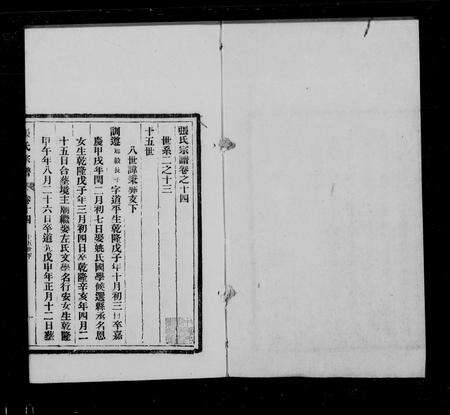 張氏宗譜卷之十四
世系二之十三
十五世
八世諱秉彝亥下
調遷 長子字道平生乾隆戊子年十月初三日卒嘉
慶甲戌年閏二月初七日娶姚氏國學候選縣丞名恩
女生乾隆戊子年三月初四日卒乾隆辛亥年四月二
十五日合葬境主廟繼娶左氏文學名行安女生乾隆
甲午年八月二十六日卒道光戊申年正月十二日葬
張氏宗譜 卷十四